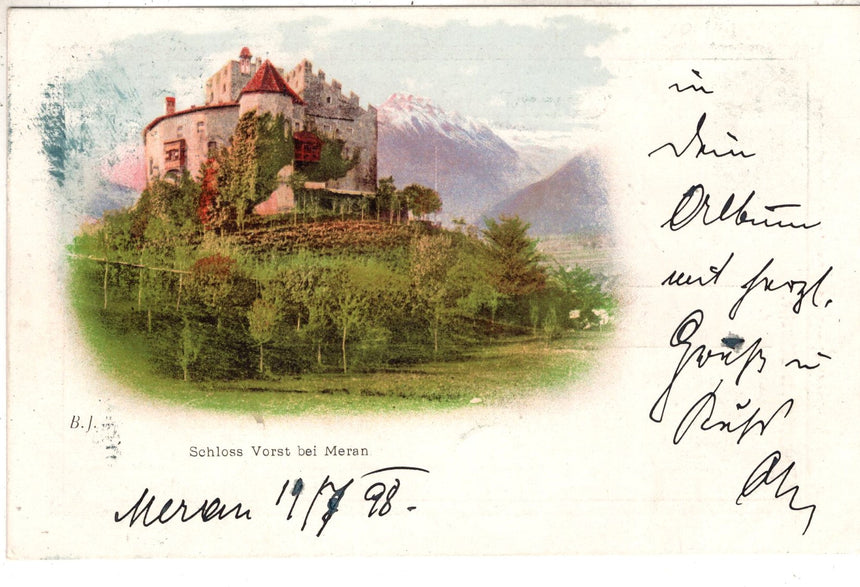 in
Dein
Album
mit herzl.
Gruß u
Kuß
B.J.
Schloss Vorst bei Meran
Meran 19/7 98.-